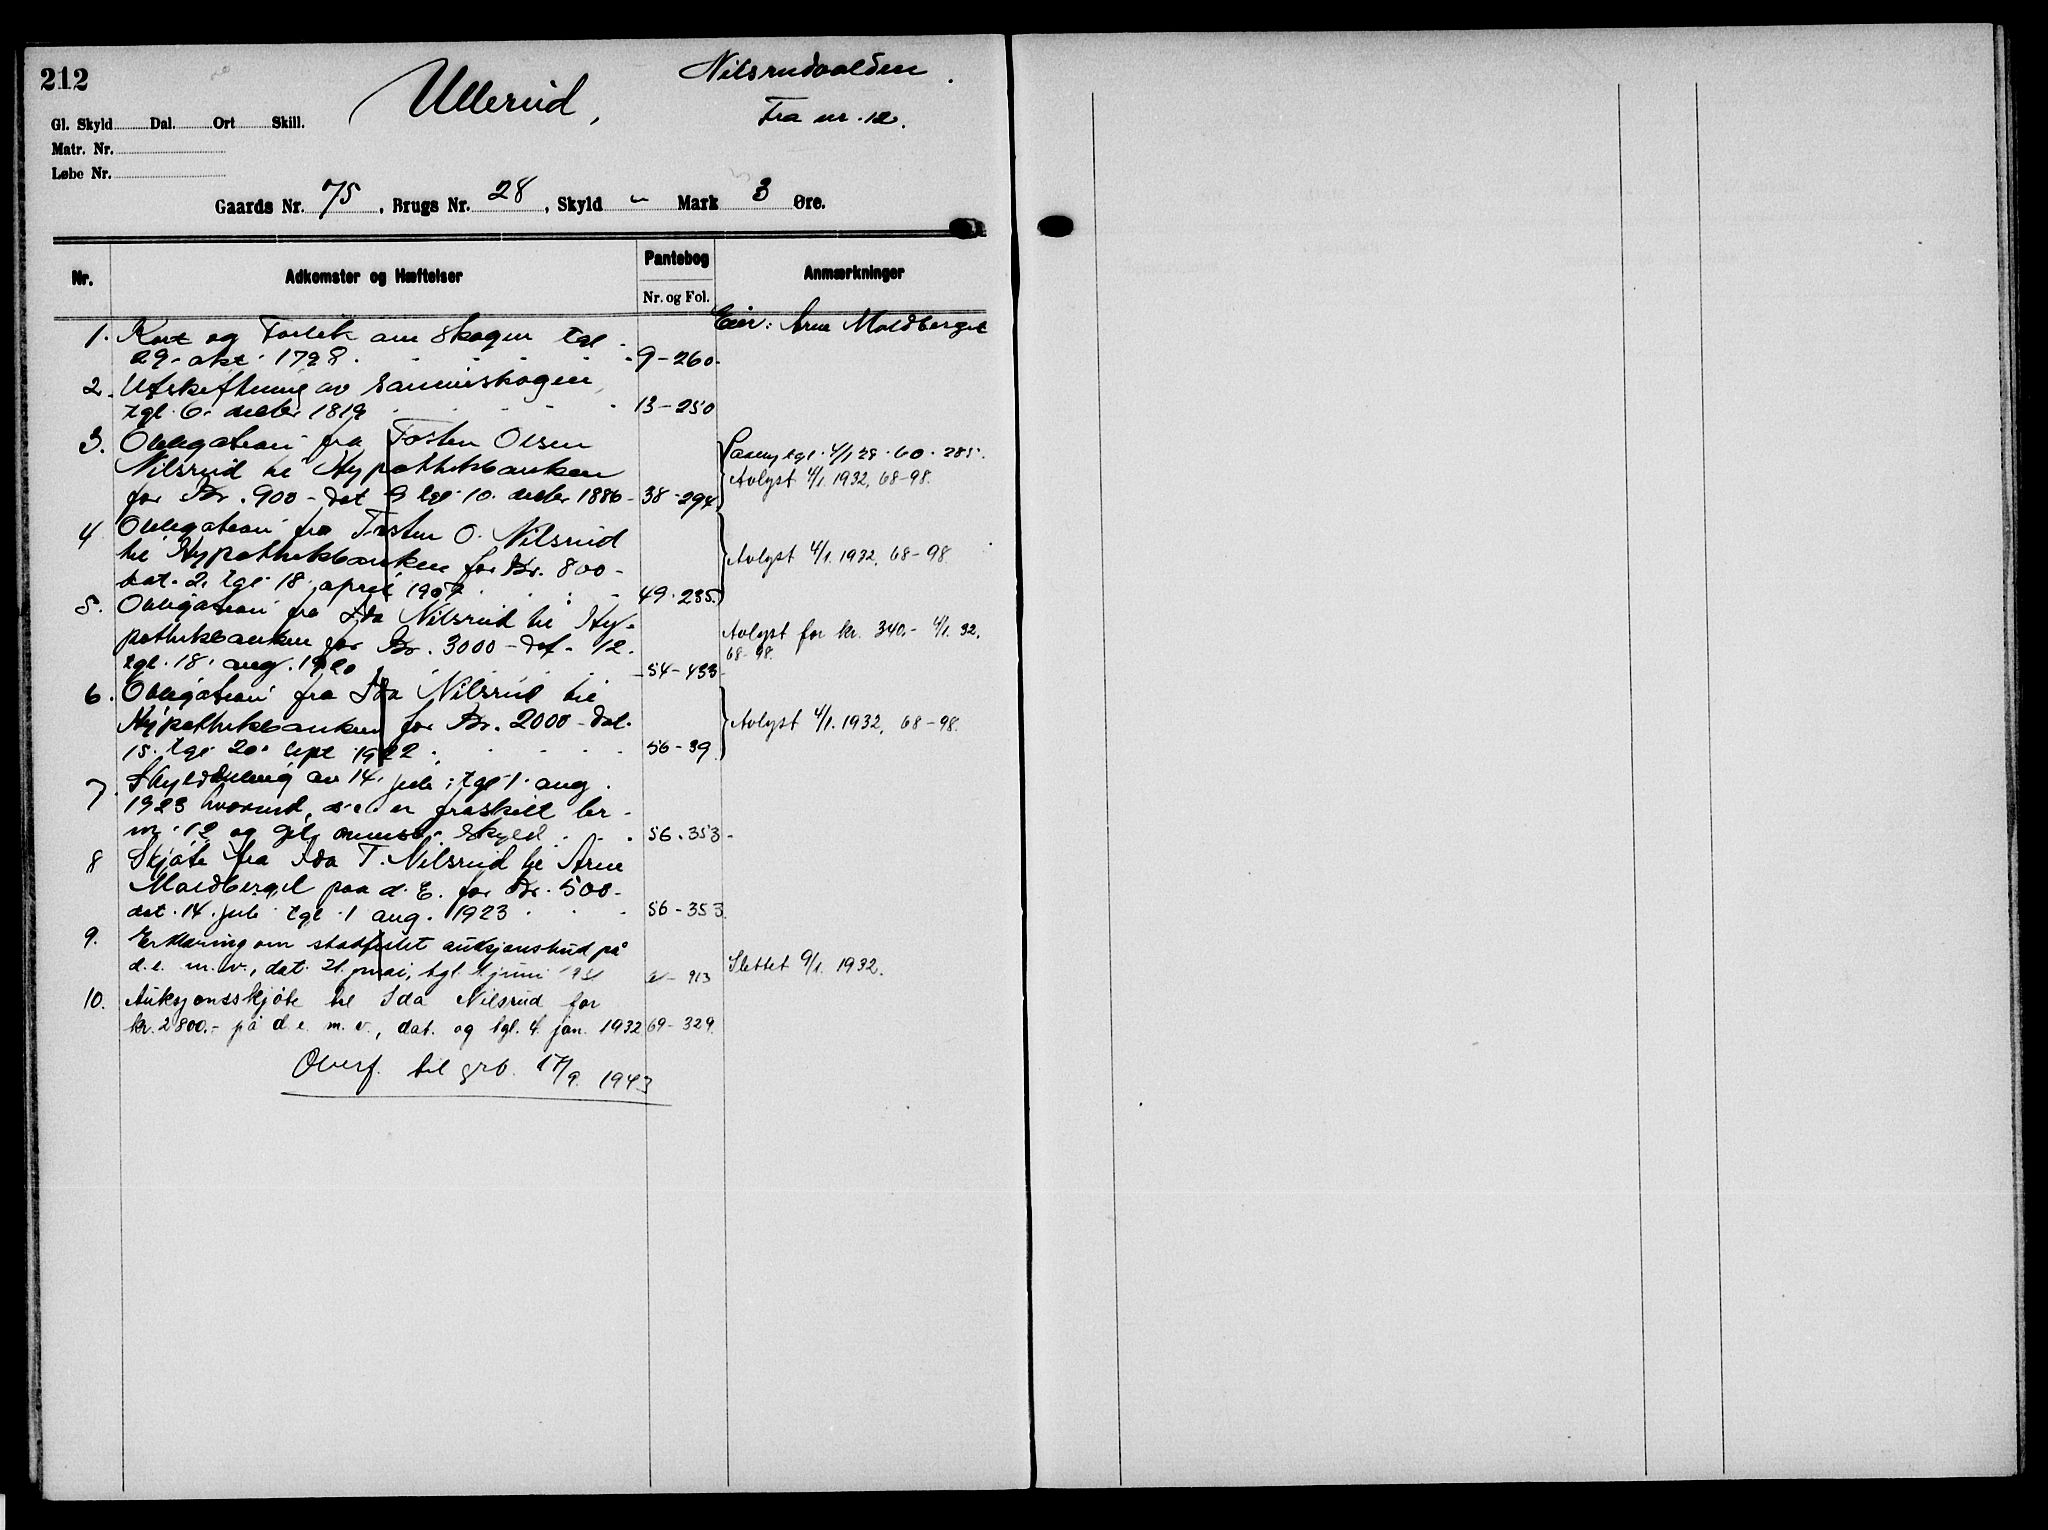 212
Ullerud,
Nilsrudvolden.
Fra nr. 12.
Gl. Skyld Dal. Ort Skill.
Matr. Nr.
Løbe Nr.
Gaards Nr. 75, Brugs Nr. 28, Skyld " Mark 3 Øre.
Nr.
Adkomster og Hæftelser
Pantebog
Nr. og Fol.
Anmærkninger
Eier: Arne Moldberget
1. Kart og Forlik om Skogen tgl.
29. okt. 1798. 9-260.
2. Utskiftning av Sameieskogen,
tgl. 6. decbr. 1819 13-250
3. Obligation fra Tosten Olsen
Nilsrud til Hypothekbanken
for Kr. 900- dat. 9 tgl. 10. decbr 1886- 38-294.
tgl. 4/1 28. 60. 285.
Avlyst 4/1. 1932, 68-98.
4 Obligation fra Tosten O. Nilsrud
til Hypothekbanken for Kr. 800-
dat. 2. tgl. 18. april 1907. 49.235.
Avlyst 4/1. 1932, 68-98.
5. Obligation fra Ida Nilsrud til Hy-
pothekbanken for Kr. 3000- dat. 1/2.
tgl. 18. aug. 1920 54-433
Avlyst for kr. 340.- 4/1. 32,
68-98.
6. Obligation fra Ida Nilsrud til
Hypothekbanken for Kr. 2000- dat.
15. tgl. 20. sept 1922. 56-39.
Avlyst 4/1. 1932, 68-98.
7. Skylddeling av 14. juli, tgl. 1. aug.
1923 hvorved d.e. er fraskilt br.
nr. 12 og git ommeldte Skyld. 56.353-
8 Skjøte fra Ida T. Nilsrud til Arne
Moldberget paa d. E. for Kr. 500-
dat. 14. juli tgl. 1 aug. 1923. 56-353.
9. Erklæring om stadfestet auksjonsbud på
d.e. m.v., dat. 21. mai, tgl. juni 1931 913
Slettet 9/1. 1932.
10. Auksjonsskjøte til Ida Nilsrud for
kr. 2800.- på d.e. m.v., dat. og tgl. 4. jan. 1932 69-329.
Overf. til grb. 17/9. 1943